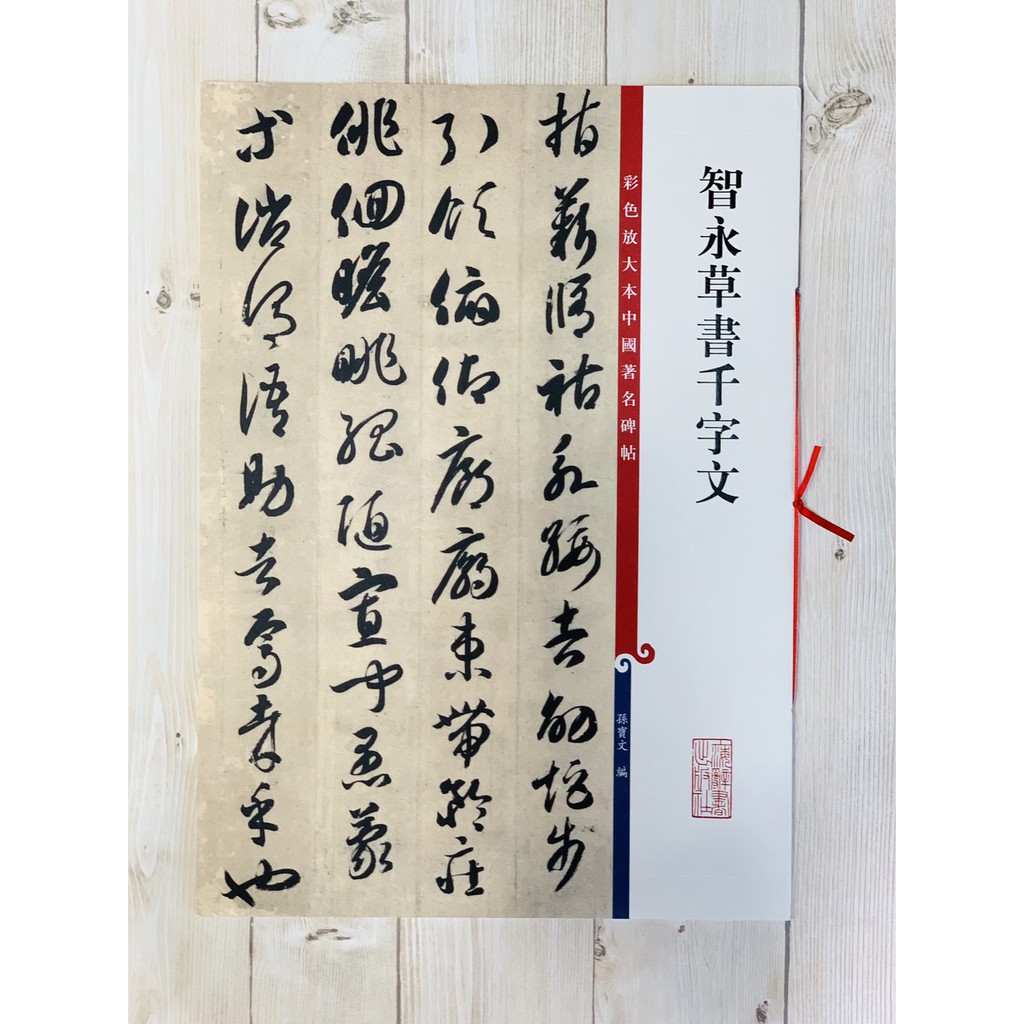 智永草書千字文
彩色放大本中國著名碑帖
孫寶文 編
上海辭書出版社
指薪脩祜永綏吉劭矩步
引領俯仰廊廟束帶矜莊
俳佪瞻眺孤陋寡聞愚蒙
等誚謂語助者焉哉乎也